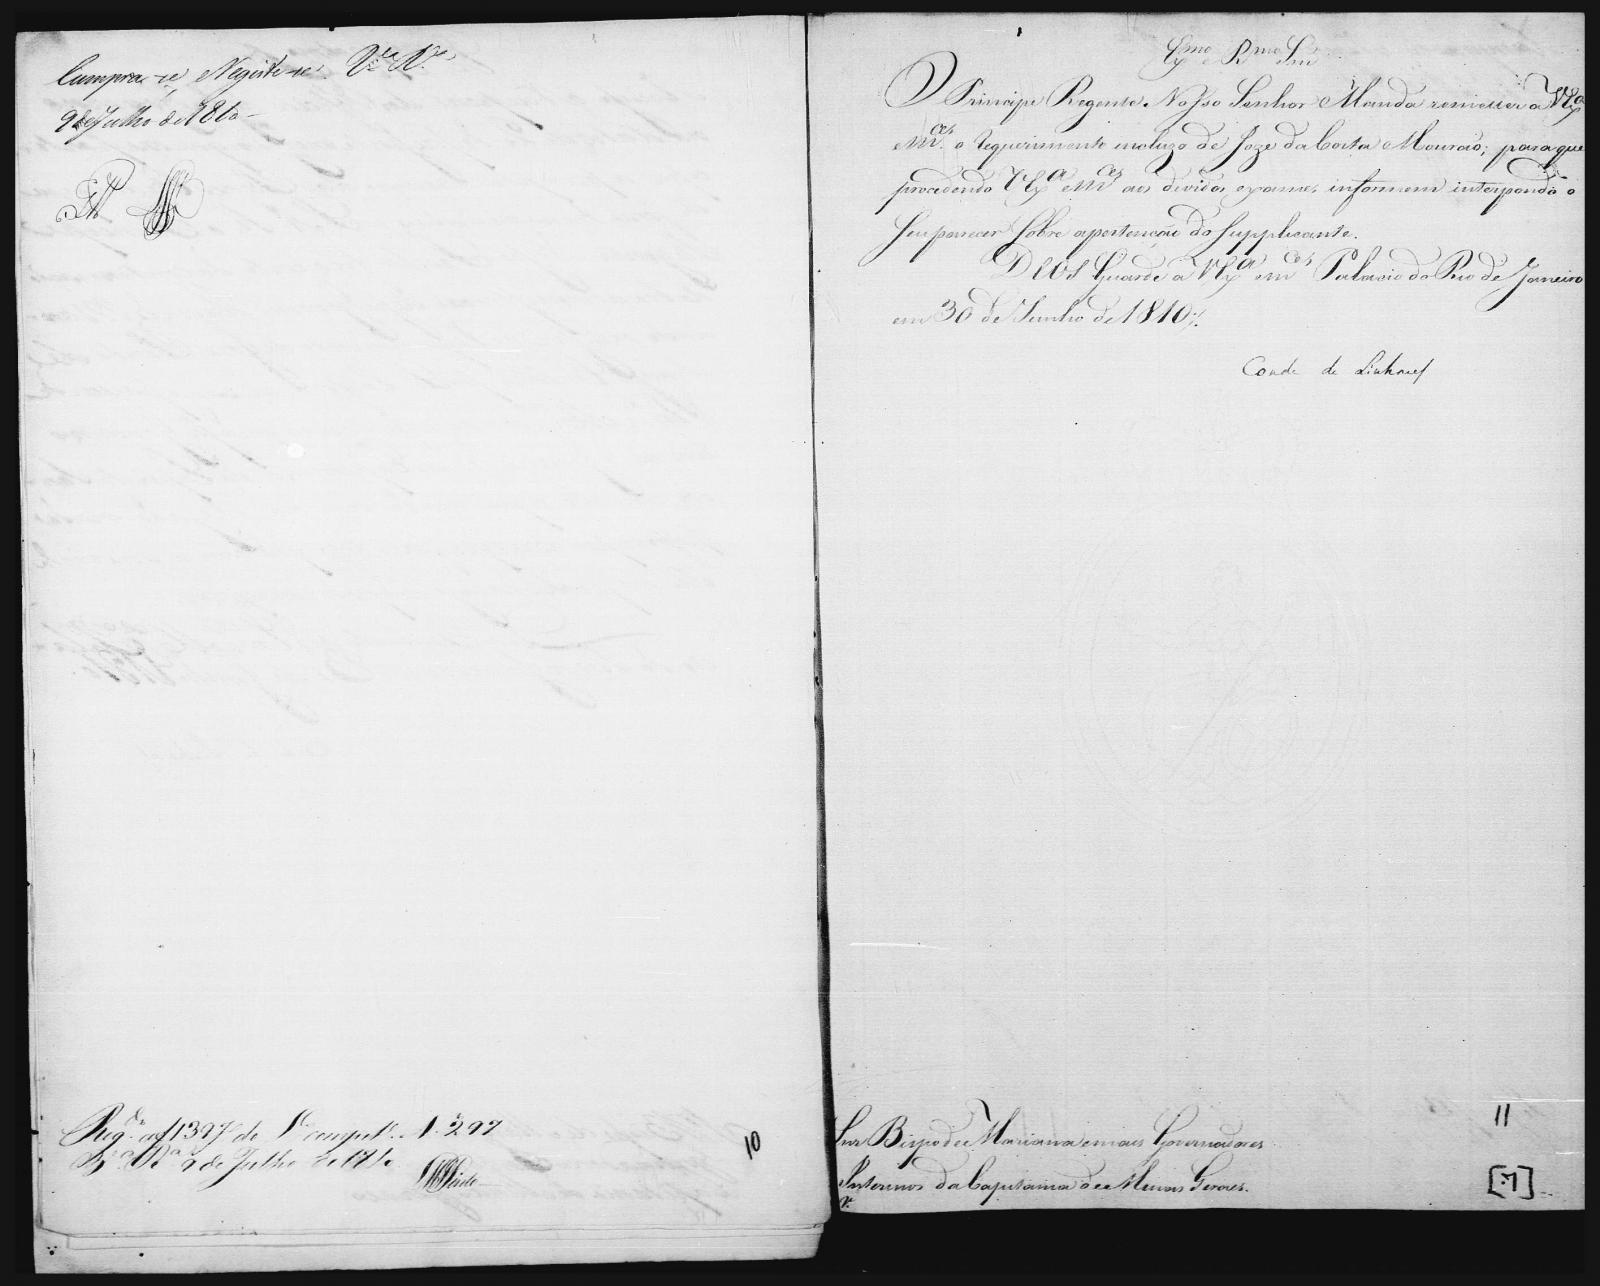 Cumpra-se, Registe-se V.ª R.ª
9 de Julho de 1810
Reg.do a f 139 do L.º compet.e N. 297
V.ª R.ª 9 de Julho de 1810
10
Ex.mo e R.mo Snr
O Principe Regente Nosso Senhor Manda remetter a V Ex.ª
e M.ces o requerimento incluzo de Joze da Costa Mourão; para que
procedendo V Ex.ª e M.ces aos dividos exames informem interpondo o
Seu parecer Sobre a pertenção do Supplicante.
Deos Guarde a V Ex.ª e M.ces Palacio do Rio de Janeiro
em 30 de Junho de 1810 //.
Conde de Linhares
Snr Bispo de Marianna e mais Governadores
Interinos da Capitania de Minas Geraes.
11
[7]